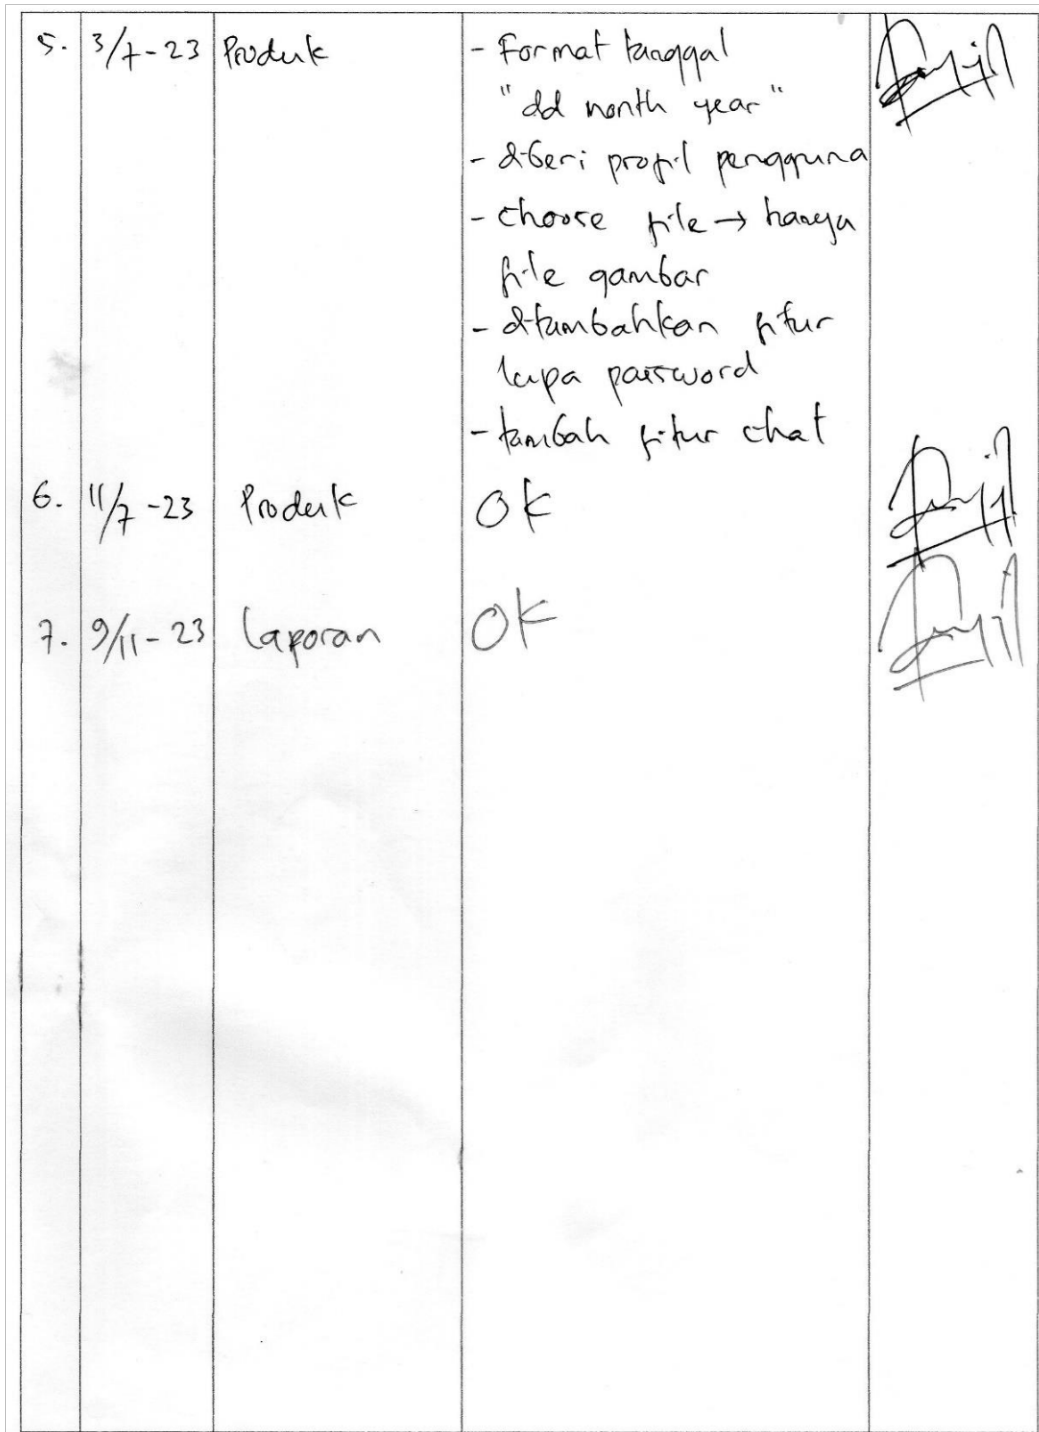 5. 3/7-23 Produk - Format tanggal
"dd month year"
- diberi profil pengguna
- choose file → hanya
file gambar
- ditambahkan fitur
lupa password
- tambah fitur chat
6. 11/7-23 Produk OK
7. 9/11-23 Laporan OK